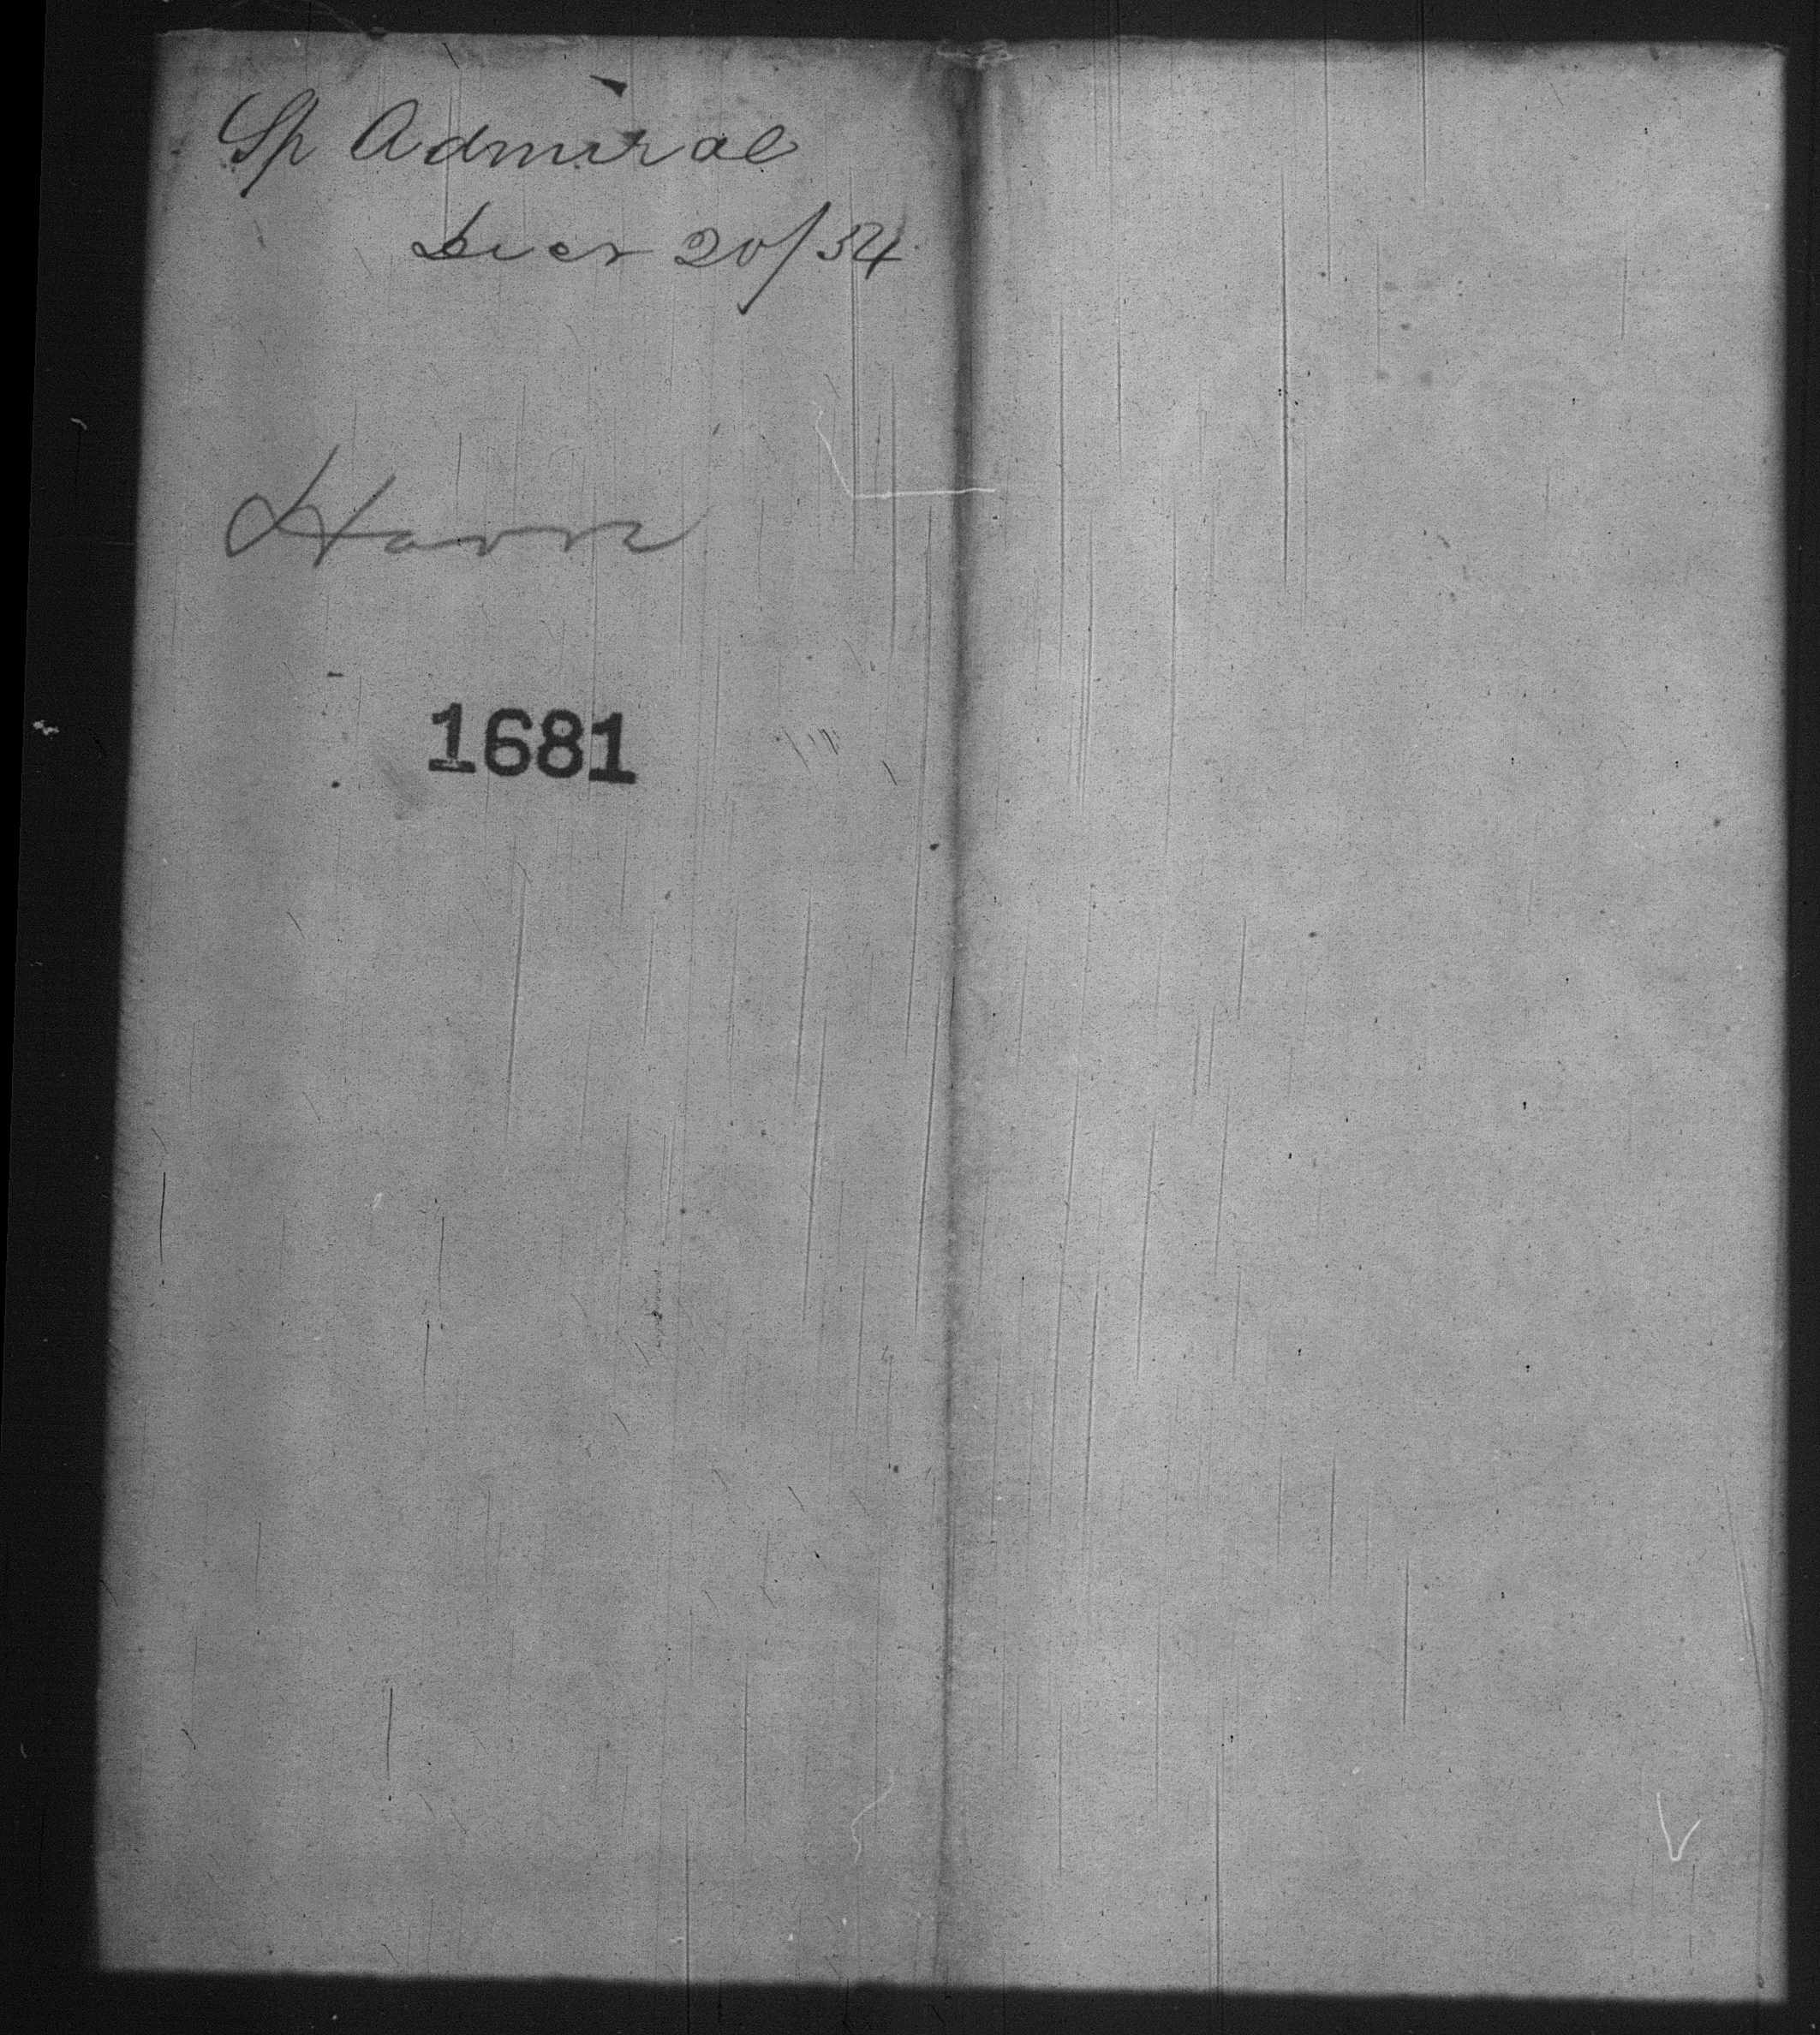 Sp Admiral
Decr 20/54
Havre
1681